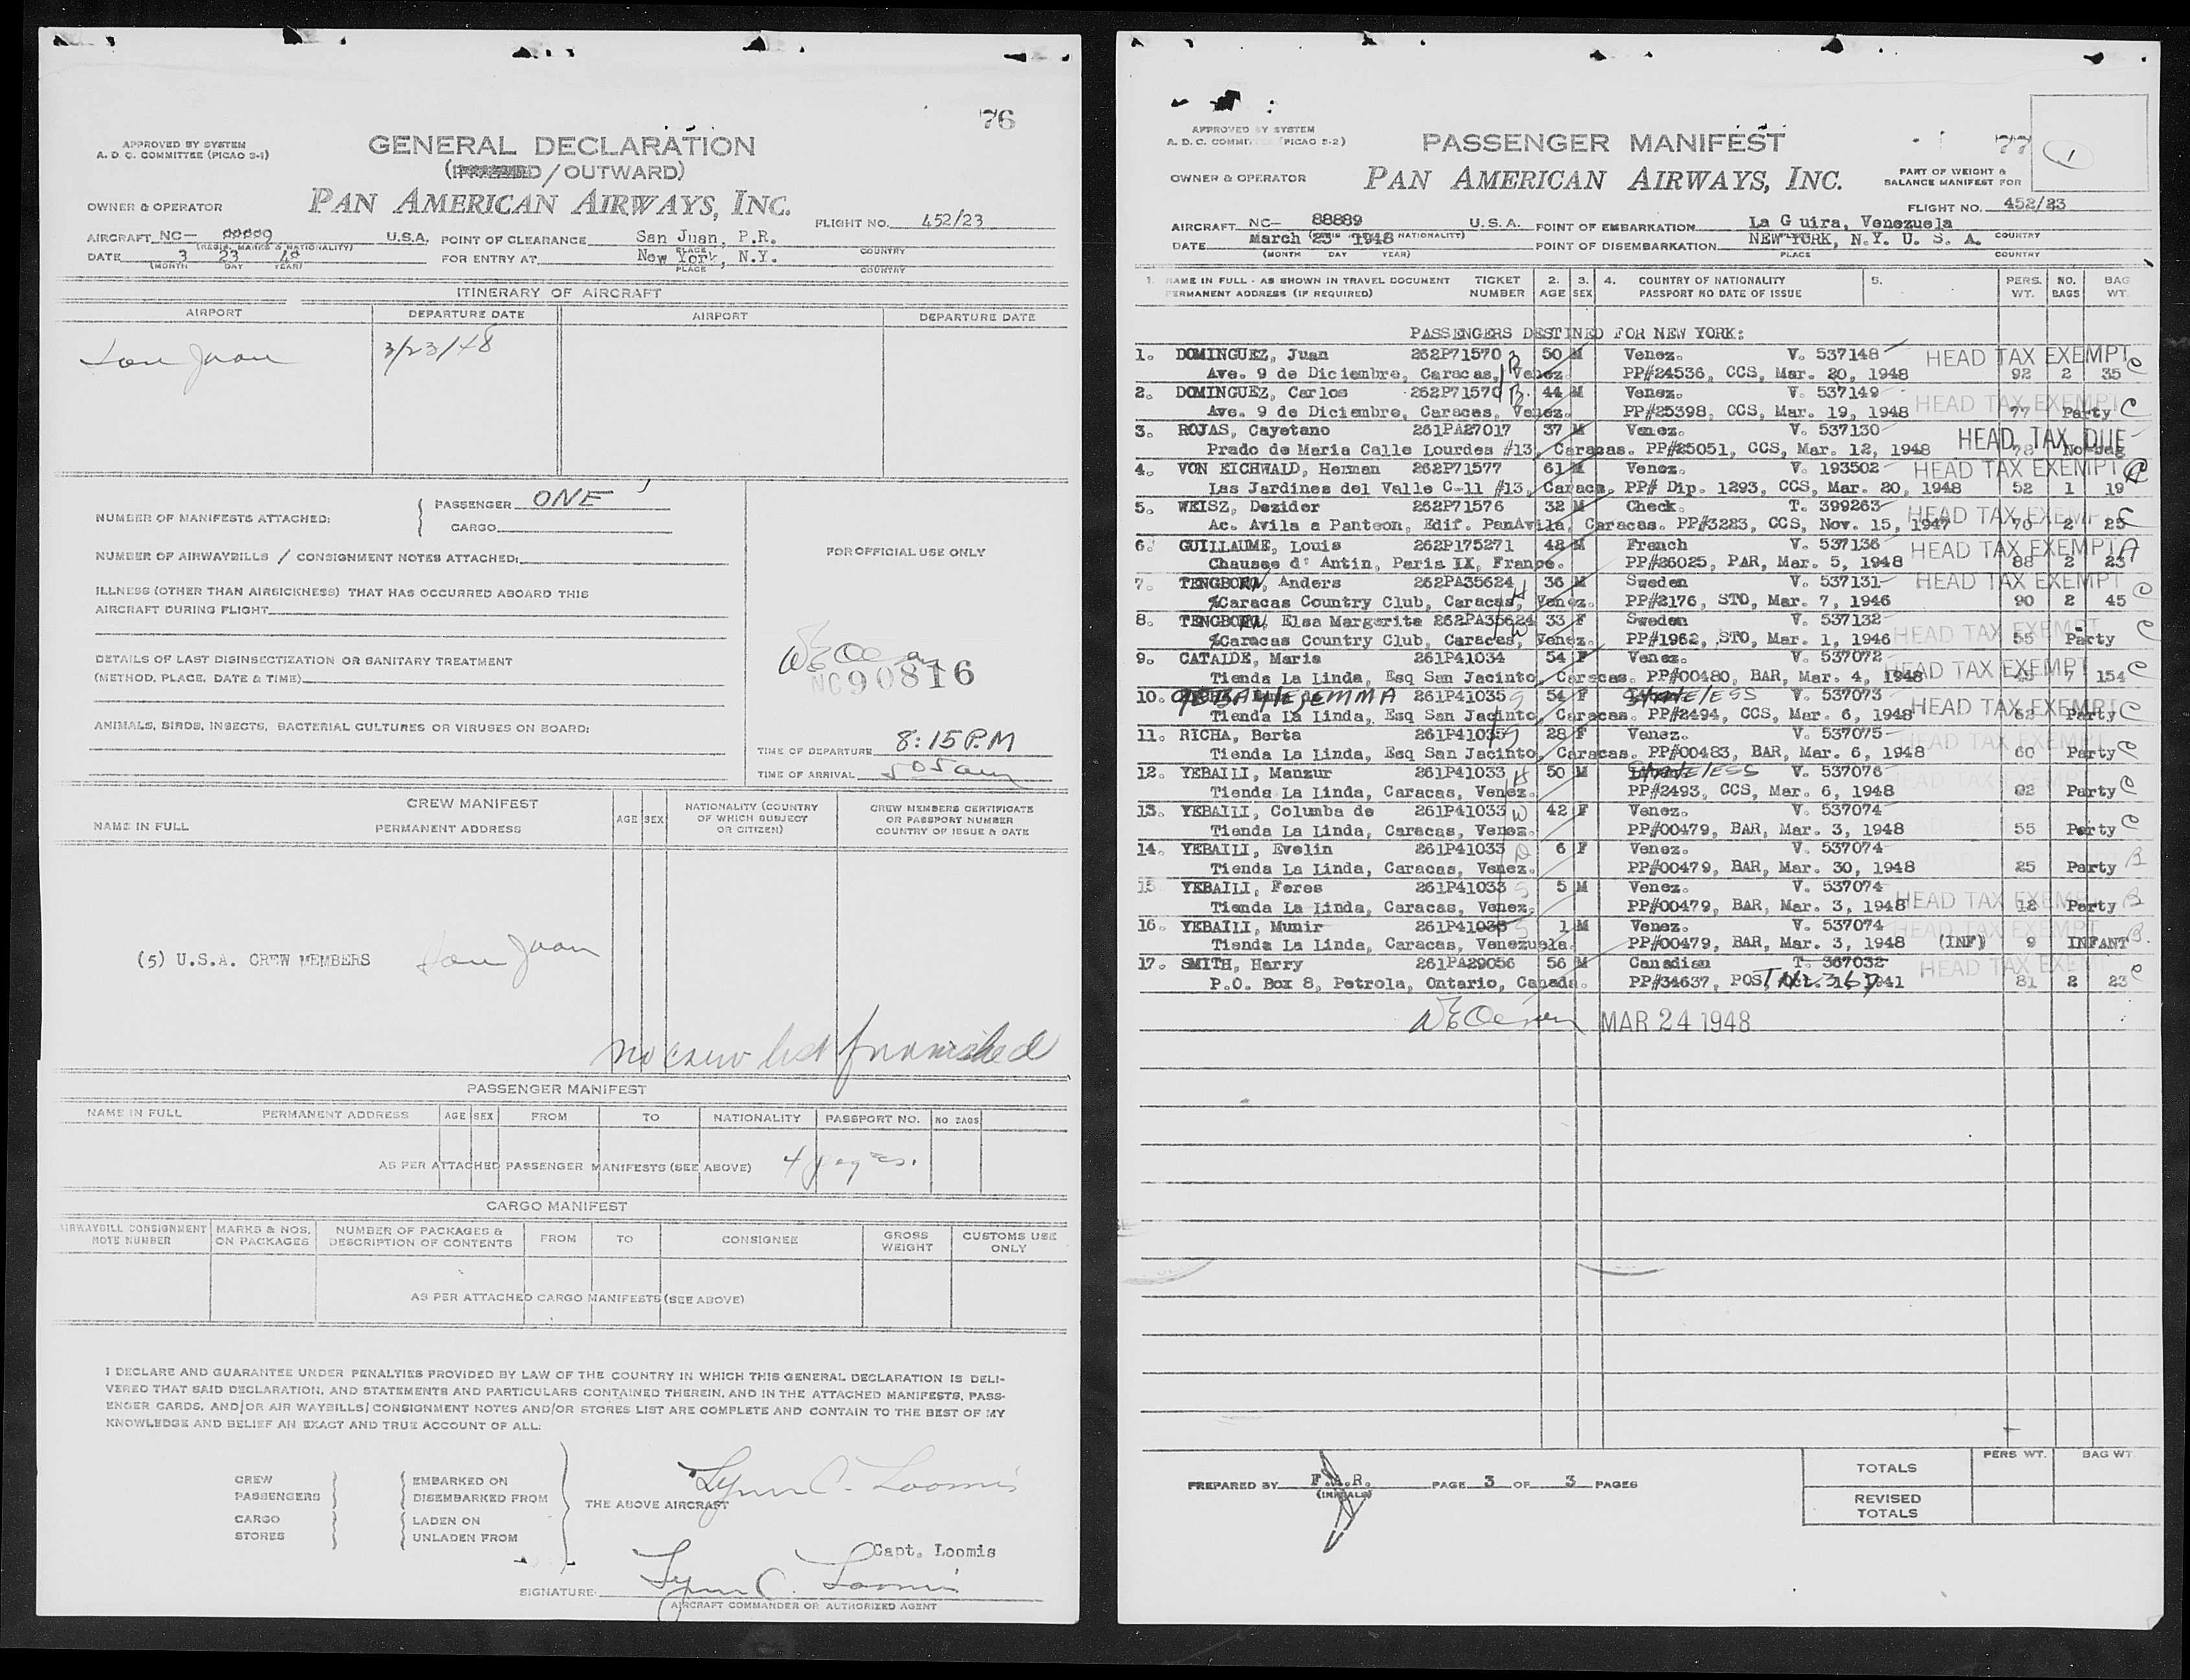 76
APPROVED BY SYSTEM
A. D. C. COMMITTEE (PICAO S-1)
GENERAL DECLARATION
/OUTWARD)
PAN AMERICAN AIRWAYS, INC.
OWNER & OPERATOR
FLIGHT NO. 452/23
AIRCRAFT NC- U.S.A. POINT OF CLEARANCE San Juan, P.R.
(REGIS. MARKS & NATIONALITY) PLACE COUNTRY
DATE 3 23 48 FOR ENTRY AT New York, N.Y.
(MONTH DAY YEAR) PLACE COUNTRY
ITINERARY OF AIRCRAFT
AIRPORT DEPARTURE DATE AIRPORT DEPARTURE DATE
San Juan 3/23/48
NUMBER OF MANIFESTS ATTACHED: PASSENGER ONE
CARGO
NUMBER OF AIRWAYBILLS / CONSIGNMENT NOTES ATTACHED:
FOR OFFICIAL USE ONLY
ILLNESS (OTHER THAN AIRSICKNESS) THAT HAS OCCURRED ABOARD THIS
AIRCRAFT DURING FLIGHT
DETAILS OF LAST DISINSECTIZATION OR SANITARY TREATMENT
(METHOD, PLACE, DATE & TIME)
NC 90816
ANIMALS, BIRDS, INSECTS, BACTERIAL CULTURES OR VIRUSES ON BOARD:
TIME OF DEPARTURE 8:15 P.M
TIME OF ARRIVAL 505 am
CREW MANIFEST
NAME IN FULL PERMANENT ADDRESS AGE SEX NATIONALITY (COUNTRY OF WHICH SUBJECT OR CITIZEN) CREW MEMBERS CERTIFICATE OR PASSPORT NUMBER COUNTRY OF ISSUE & DATE
(5) U.S.A. CREW MEMBERS San Juan
no crew list furnished
PASSENGER MANIFEST
NAME IN FULL PERMANENT ADDRESS AGE SEX FROM TO NATIONALITY PASSPORT NO. NO BAGS
AS PER ATTACHED PASSENGER MANIFESTS (SEE ABOVE) 4 pages.
CARGO MANIFEST
AIRWAYBILL CONSIGNMENT NOTE NUMBER MARKS & NOS. ON PACKAGES NUMBER OF PACKAGES & DESCRIPTION OF CONTENTS FROM TO CONSIGNEE GROSS WEIGHT CUSTOMS USE ONLY
AS PER ATTACHED CARGO MANIFESTS (SEE ABOVE)
I DECLARE AND GUARANTEE UNDER PENALTIES PROVIDED BY LAW OF THE COUNTRY IN WHICH THIS GENERAL DECLARATION IS DELI-
VERED THAT SAID DECLARATION, AND STATEMENTS AND PARTICULARS CONTAINED THEREIN, AND IN THE ATTACHED MANIFESTS, PASS-
ENGER CARDS, AND/OR AIR WAYBILLS/CONSIGNMENT NOTES AND/OR STORES LIST ARE COMPLETE AND CONTAIN TO THE BEST OF MY
KNOWLEDGE AND BELIEF AN EXACT AND TRUE ACCOUNT OF ALL:
CREW EMBARKED ON
PASSENGERS DISEMBARKED FROM
THE ABOVE AIRCRAFT
CARGO LADEN ON
STORES UNLADEN FROM
Lynn C. Loomis
Capt. Loomis
SIGNATURE Lynn C. Loomis
AIRCRAFT COMMANDER OR AUTHORIZED AGENT
APPROVED BY SYSTEM
A. D. C. COMMITTEE (PICAO S-2)
PASSENGER MANIFEST
77
1
OWNER & OPERATOR
PAN AMERICAN AIRWAYS, INC.
PART OF WEIGHT &
BALANCE MANIFEST FOR
FLIGHT NO. 452/23
AIRCRAFT NC- 88889 U.S.A. POINT OF EMBARKATION La Guira, Venezuela
DATE March 23 1948 POINT OF DISEMBARKATION NEW YORK, N.Y. U. S. A. COUNTRY
(MONTH DAY YEAR) PLACE COUNTRY
1. NAME IN FULL - AS SHOWN IN TRAVEL DOCUMENT TICKET 2. 3. 4. COUNTRY OF NATIONALITY 5. PERS. NO. BAG
PERMANENT ADDRESS (IF REQUIRED) NUMBER AGE SEX PASSPORT NO DATE OF ISSUE WT. BAGS WT.
PASSENGERS DESTINED FOR NEW YORK:
1. DOMINGUEZ, Juan 262P71570 B 50 M Venez. V. 537148 HEAD TAX EXEMPT C
Ave. 9 de Diciembre, Caracas, Venez PP#24536, CCS, Mar. 20, 1948 92 2 35
2. DOMINGUEZ, Carlos 262P71570 B. 44 M Venez. V. 537149 HEAD TAX EXEMPT
Ave. 9 de Diciembre, Caracas, Venez. PP#25398, CCS, Mar. 19, 1948 77 Party C
3. ROJAS, Cayetano 261PA27017 37 M Venez. V. 537130 HEAD TAX DUE
Prado de Maria Calle Lourdes #13, Caracas. PP#25051, CCS, Mar. 12, 1948 78 No bag
4. VON EICHWALD, Herman 262P71577 61 M Venez. V. 193502 HEAD TAX EXEMPT
Las Jardines del Valle C-11 #13, Caracs. PP# Dip. 1293, CCS, Mar. 20, 1948 52 1 19
5. WEISZ, Dezider 262P71576 32 M Check. T. 399263 HEAD TAX EXEMPT C
Ac. Avila a Panteon, Edif. PanAvila, Caracas. PP#3283, CCS, Nov. 15, 1947 70 2 25
6. GUILLAUME, Louis 262P175271 48 M French V. 537136 HEAD TAX EXEMPT A
Chausee d' Antin, Paris IX, France. PP#26025, PAR, Mar. 5, 1948 88 2 23
7. Anders 262PA35624 H 36 M Sweden V. 537131 HEAD TAX EXEMPT C
%Caracas Country Club, Caracas, Venez. PP#2176, STO, Mar. 7, 1946 90 2 45
8. Elsa Margarita 262PA35624 W 33 F Sweden V. 537132 HEAD TAX EXEMPT C
%Caracas Country Club, Caracas, Venez. PP#1962, STO, Mar. 1, 1946 55 Party
9. CATALDE, Maria 261P41034 54 F Venez. V. 537072 HEAD TAX EXEMPT C
Tienda La Linda, Esq San Jacinto, Caracas. PP#00480, BAR, Mar. 4, 1948 7 154
10. EMMA 261P41035 S 54 F STATELESS V. 537073 HEAD TAX EXEMPT
Tienda La Linda, Esq San Jacinto, Caracas. PP#2494, CCS, Mar. 6, 1948 62 Party C
11. RICHA, Berta 261P41035 S 28 F Venez. V. 537075 HEAD TAX EXEMPT
Tienda La Linda, Esq San Jacinto, Caracas. PP#00483, BAR, Mar. 6, 1948 60 Party C
12. YEBAILI, Manzur 261P41033 H 50 M STATELESS V. 537076 HEAD TAX EXEMPT
Tienda La Linda, Caracas, Venez. PP#2493, CCS, Mar. 6, 1948 82 Party C
13. YEBAILI, Columba de 261P41033 W 42 F Venez. V. 537074
Tienda La Linda, Caracas, Venez. PP#00479, BAR, Mar. 3, 1948 55 Party C
14. YEBAILI, Evelin 261P41033 D 6 F Venez. V. 537074
Tienda La Linda, Caracas, Venez. PP#00479, BAR, Mar. 30, 1948 25 Party B
15 YEBAILI, Feres 261P41033 S 5 M Venez. V. 537074 HEAD TAX EXEMPT
Tienda La Linda, Caracas, Venez. PP#00479, BAR, Mar. 3, 1948 18 Party B
16. YEBAILI, Munir 261P41033 S 1 M Venez. V. 537074 HEAD TAX EXEMPT
Tienda La Linda, Caracas, Venezuela. PP#00479, BAR, Mar. 3, 1948 (INF) 9 INFANT B.
17. SMITH, Harry 261PA29056 56 M Canadian T. 367032 HEAD TAX EXEMPT
P.O. Box 8, Petrola, Ontario, Canada. PP#34637, POST, 1941 81 2 23 C
MAR 24 1948
PERS WT. BAG WT
TOTALS
PREPARED BY F.A.R. PAGE 3 OF 3 PAGES
(INITIALS)
REVISED
TOTALS